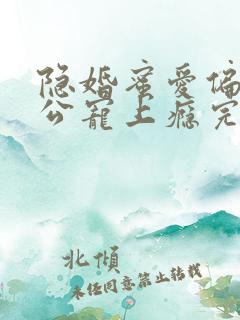 隐婚蜜爱偏
公宠上瘾完
北倾
未经同意禁止转载